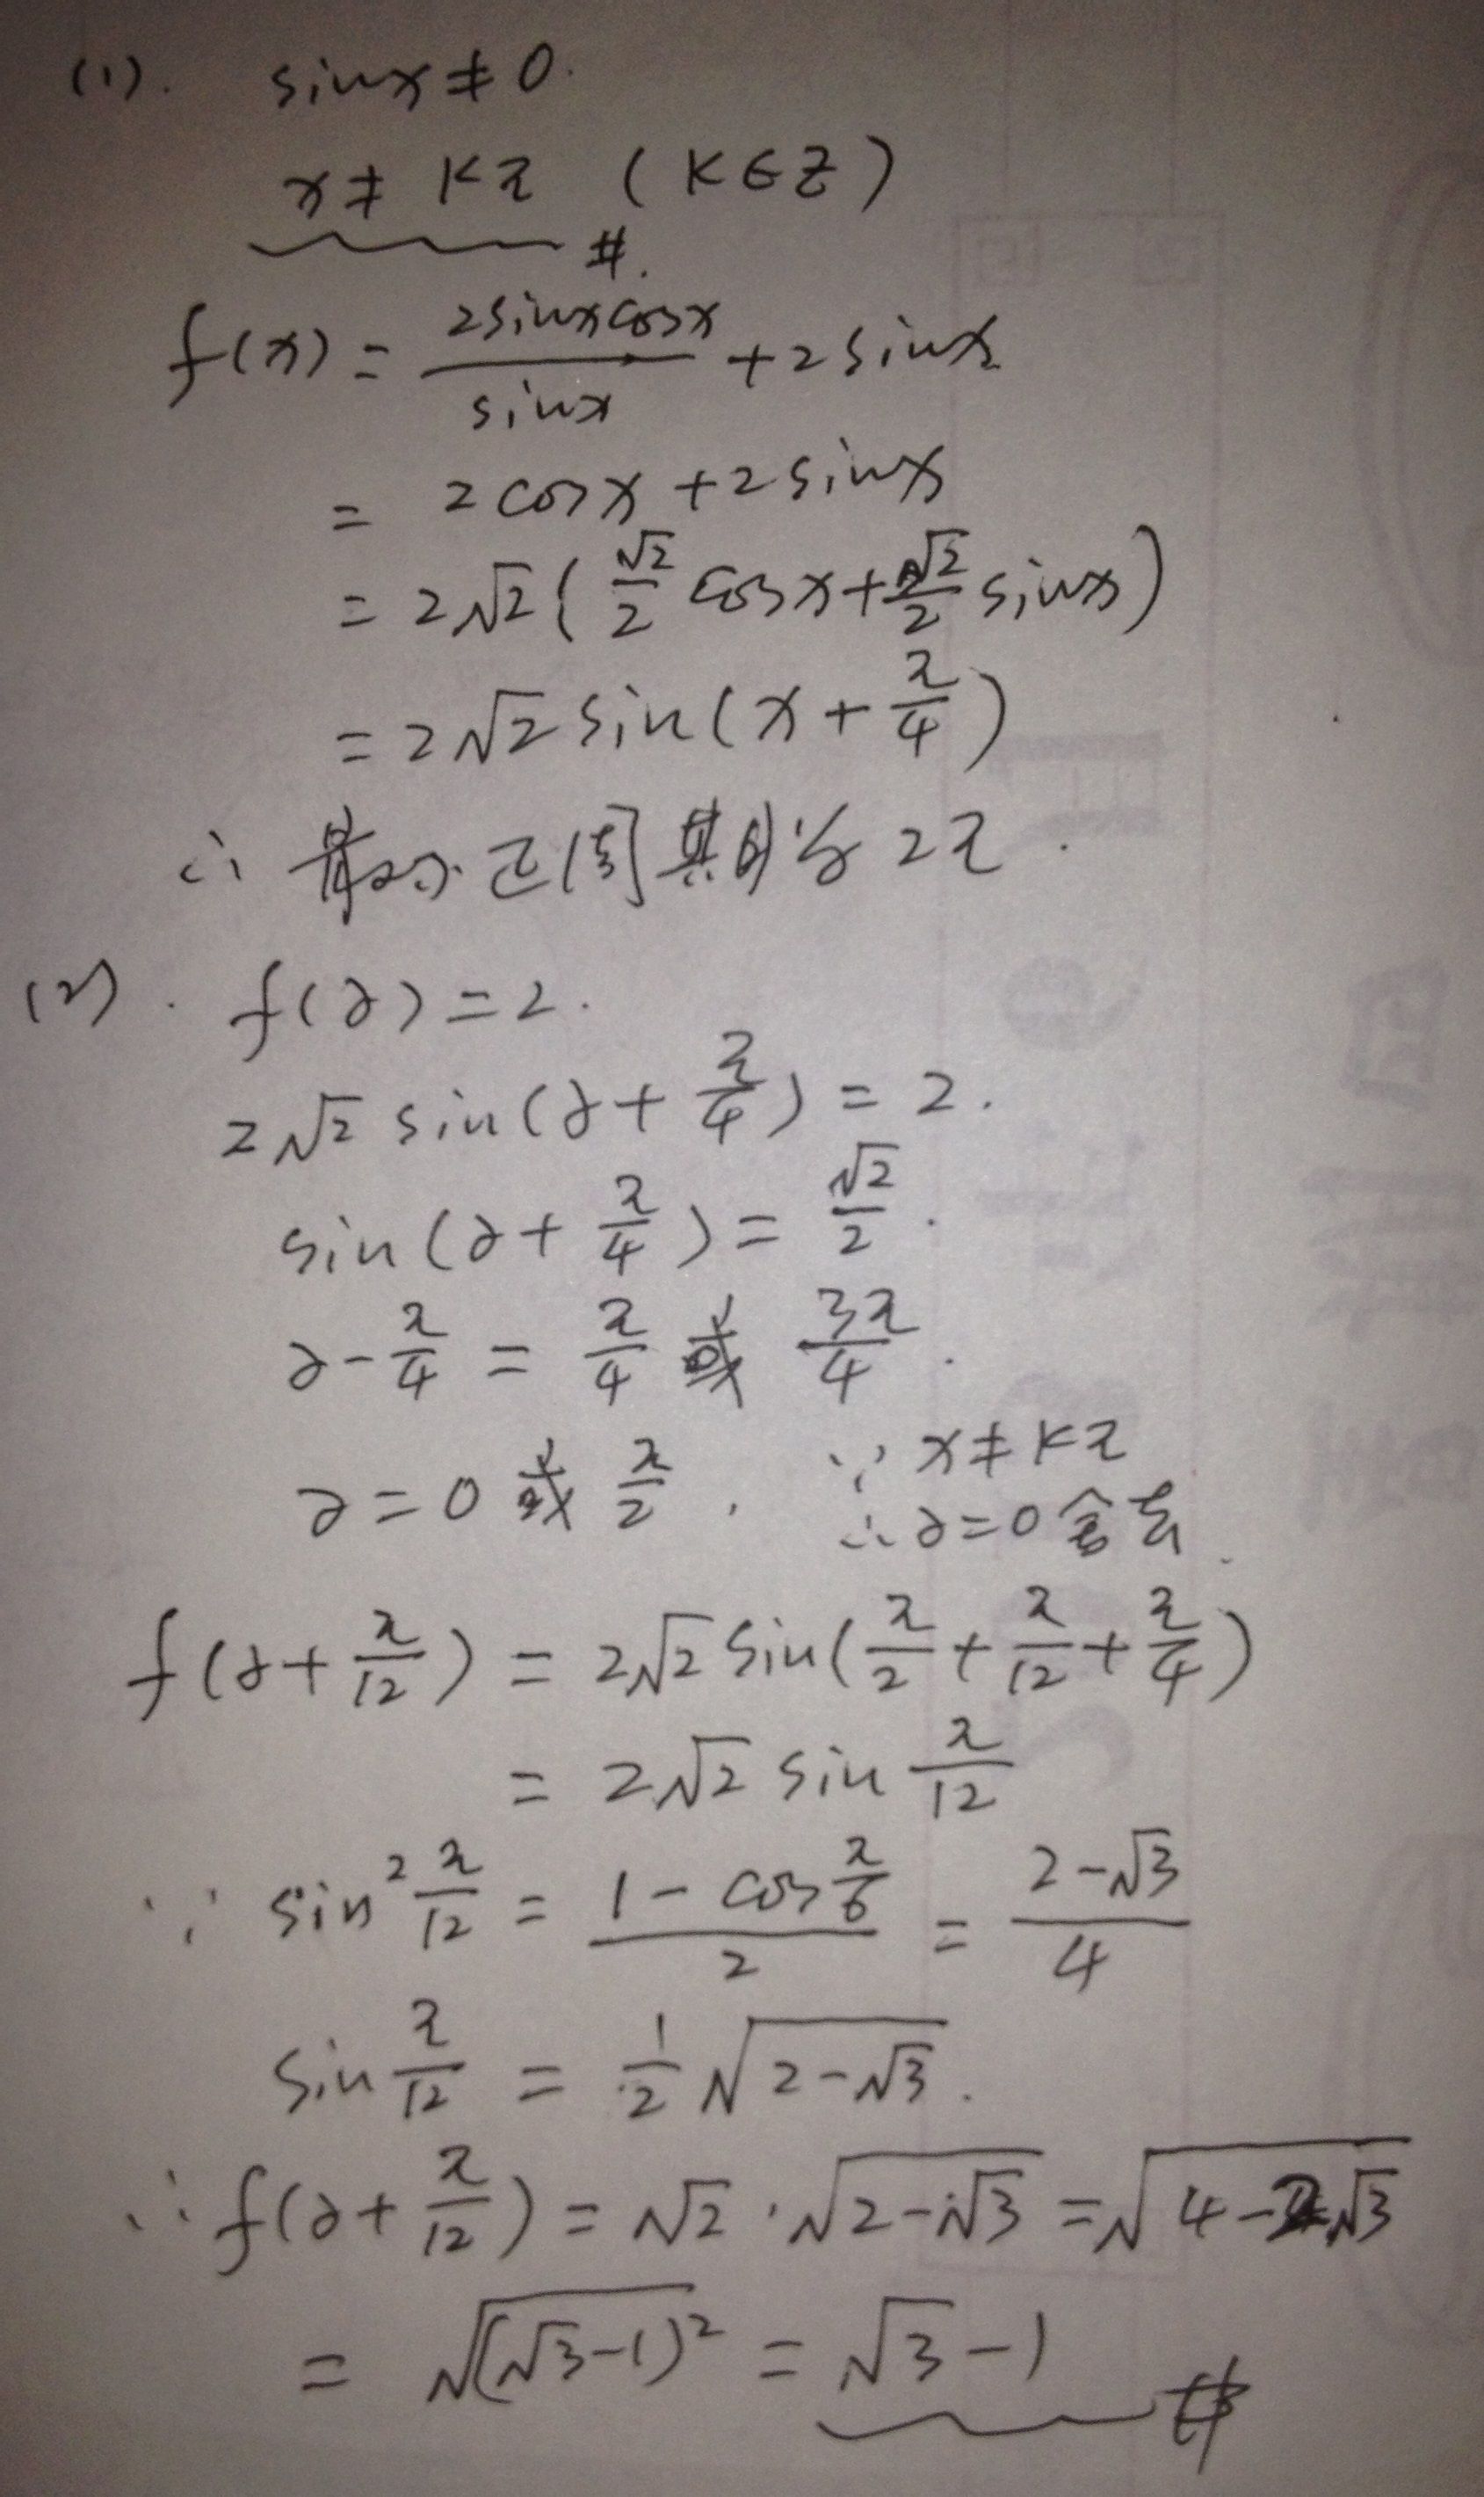 (1). sinx≠0.
x≠kπ (k∈Z)
#.
f(x)=\frac{2sinxcosx}{sinx}+2sinx
=2cosx+2sinx
=2√2(\frac{√2}{2}cosx+\frac{√2}{2}sinx)
=2√2sin(x+\frac{π}{4})
∴ 最小正周期为2π.
(2). f(α)=2.
2√2sin(α+\frac{π}{4})=2.
sin(α+\frac{π}{4})=\frac{√2}{2}.
α-\frac{π}{4}=\frac{π}{4}或\frac{3π}{4}.
α=0或\frac{π}{2}, ∵x≠kπ
∴α=0舍去.
f(α+\frac{π}{12})=2√2sin(\frac{π}{2}+\frac{π}{12}+\frac{π}{4})
=2√2sin\frac{π}{12}
∵ sin²\frac{π}{12}=\frac{1-cos\frac{π}{6}}{2}=\frac{2-√3}{4}
sin\frac{π}{12}=\frac{1}{2}\sqrt{2-√3}.
∴f(α+\frac{π}{12})=√2·\sqrt{2-√3}=\sqrt{4-2√3}
=\sqrt{(√3-1)²}=√3-1
#